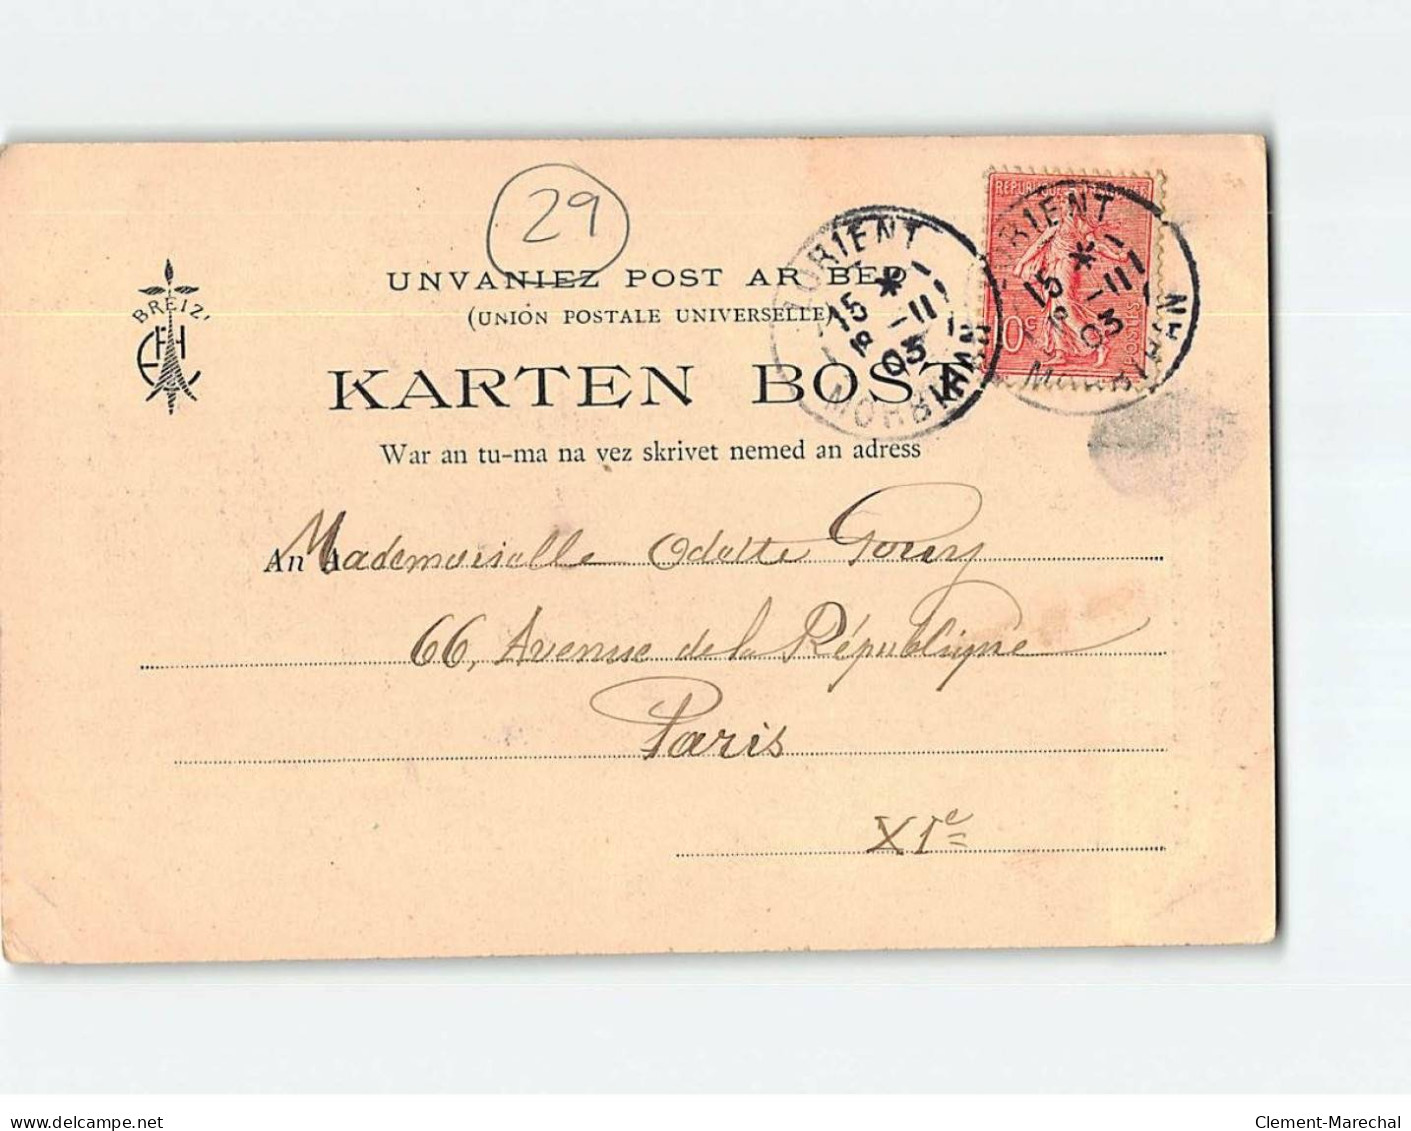 29
BREIZ'
UNVANIEZ POST AR BED
(UNION POSTALE UNIVERSELLE)
KARTEN BOST
War an tu-ma na vez skrivet nemed an adress
REPUBLIQUE
10c
POSTES
LORIENT
15 * -11
03
MORBIHAN
LORIENT
15 * -11
03
An A
Mademoiselle Odette
66, Avenue de la République
Paris
XIe
delcampe.net
Clement-Marechal